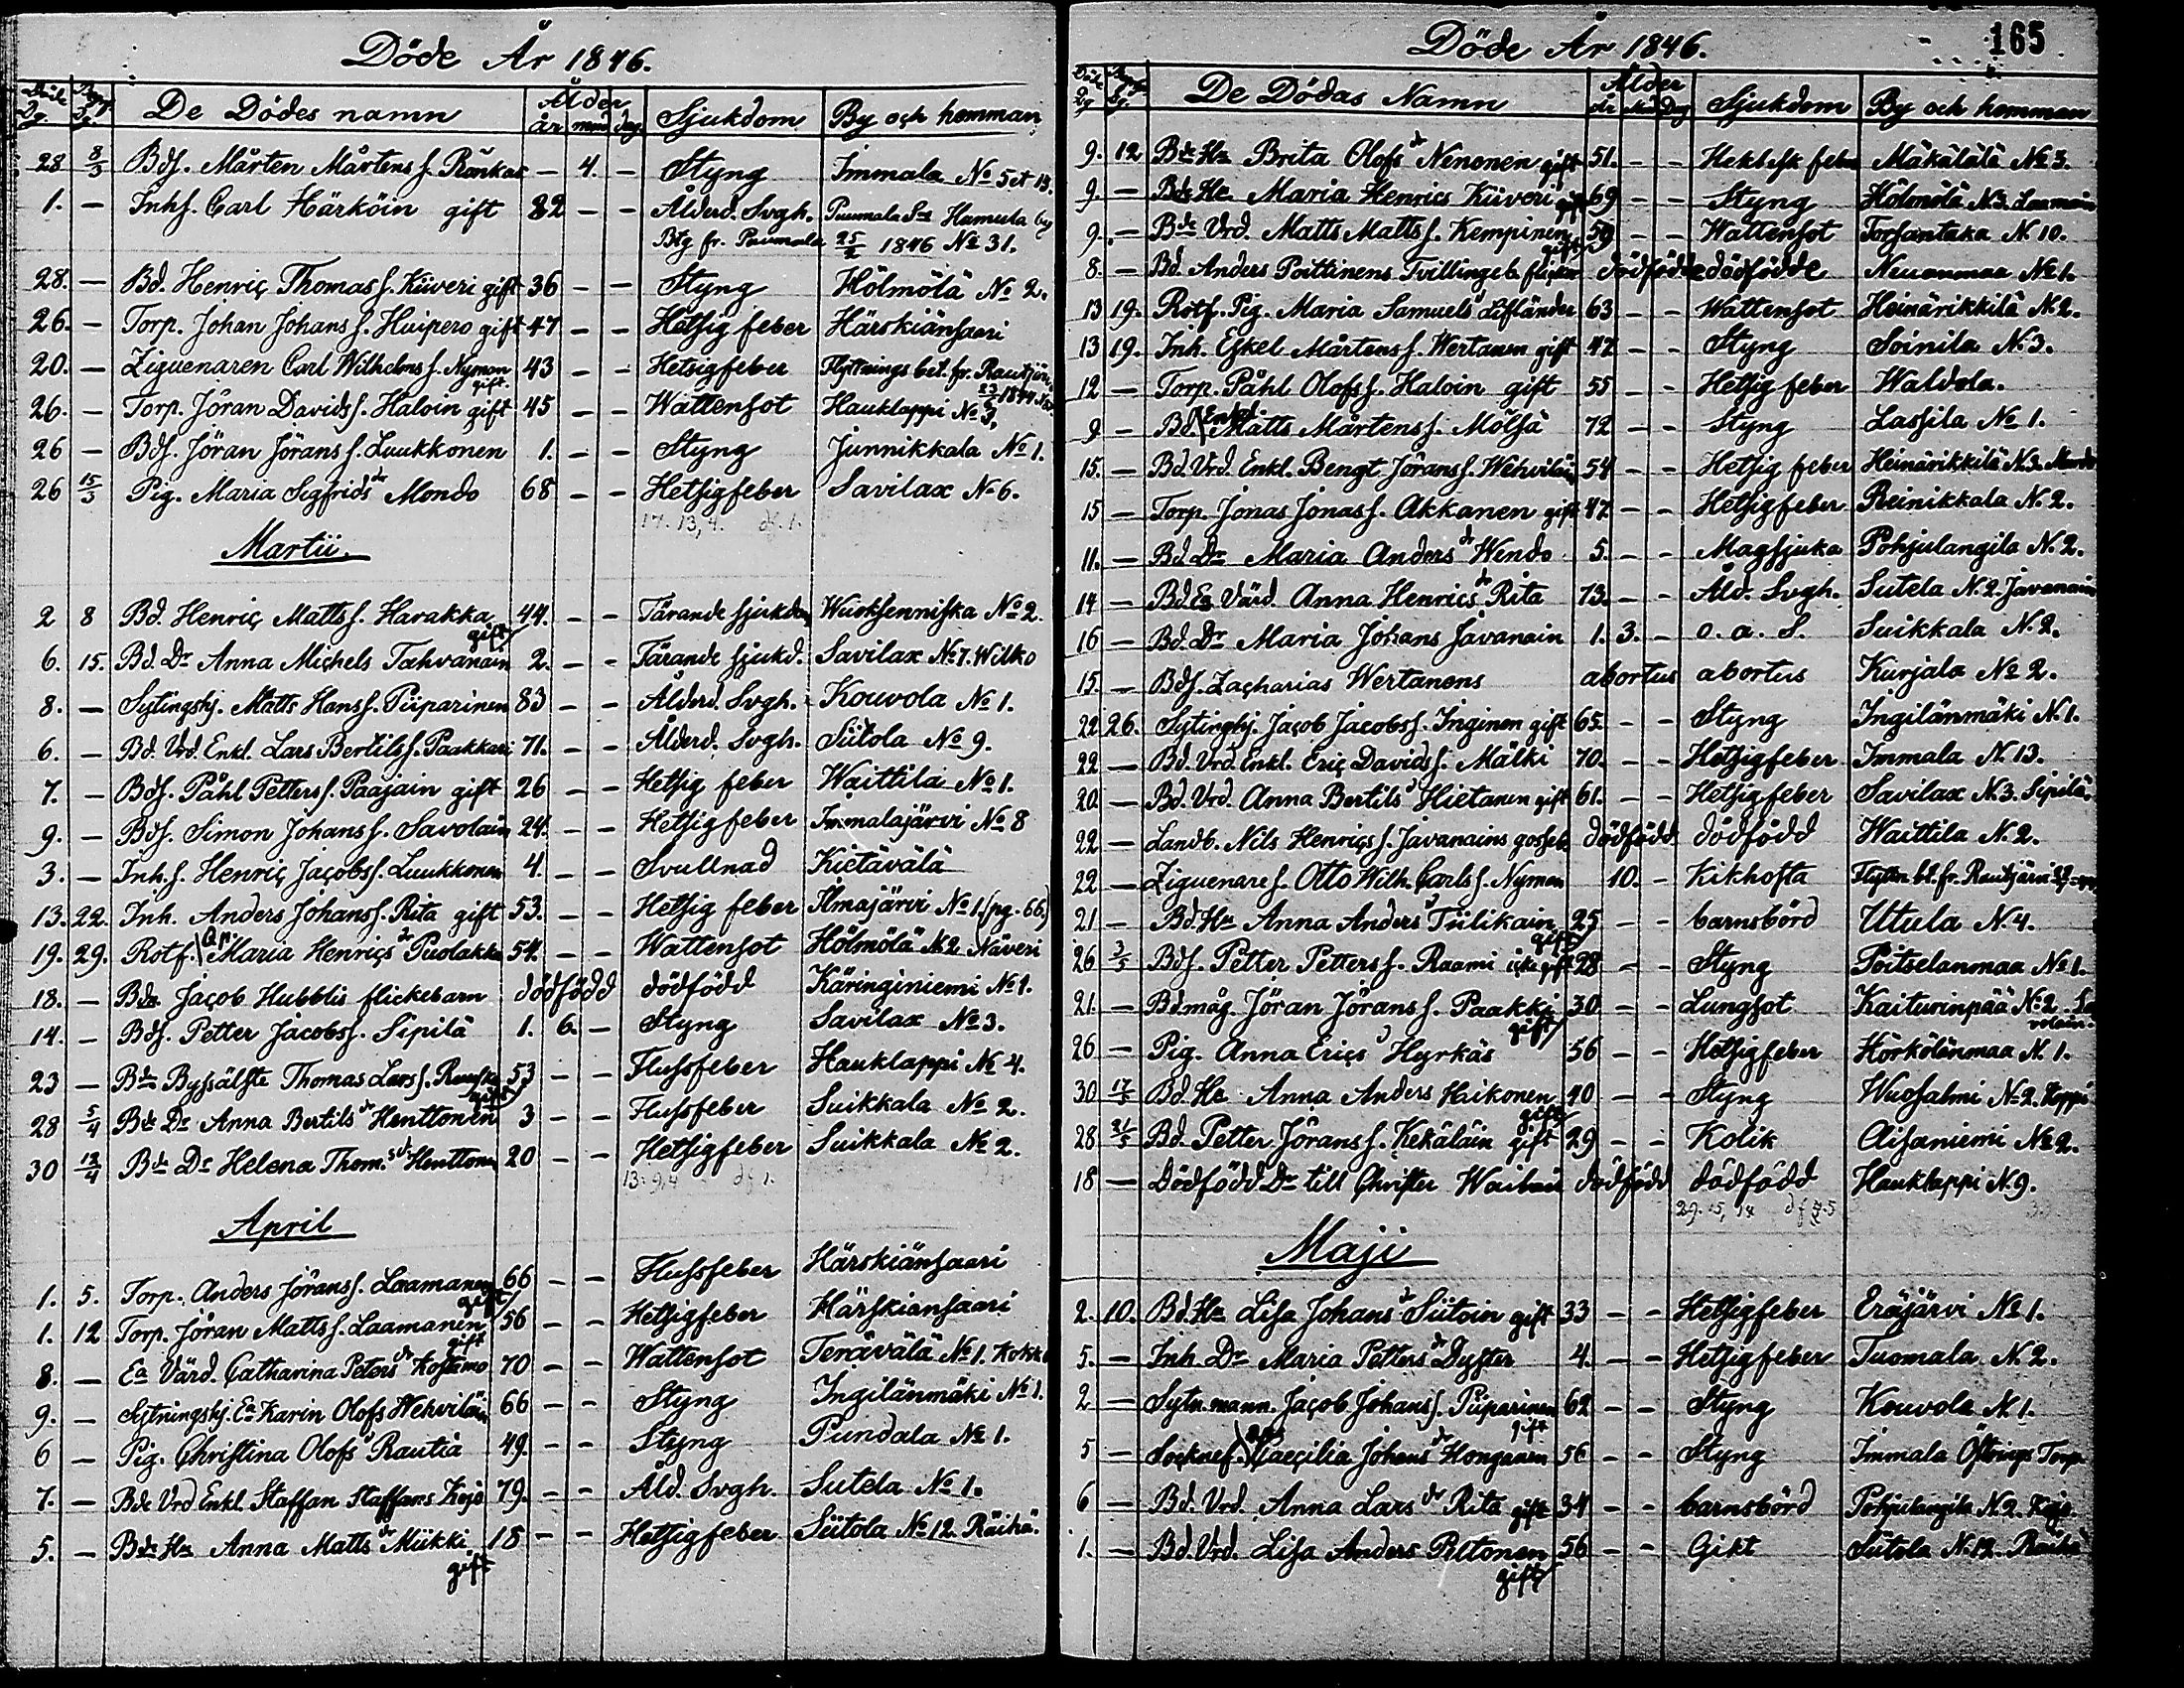 Döde År 1846.
Döde Dg. Begr. Dg. De Dödes namn Ålder år mand dag Sjukdom By och hemman
28 8/3 Bds. Mårten Mårtens s. Rönkas — 4. — Styng Immala No 5 et 13.
1. — Inhs. Carl Härköin gift 82 — — Ålderd. Svgh. Puumala Sn Hamula by
Btg fr. Puumala 25/2 1846 No 31.
28. — Bd. Henric Thomas s. Kiiveri gift 36 — — Styng Hölmölä No 2.
26. — Torp. Johan Johans s. Huipero gift 47 — — Hetsig feber Härskiänsaari
20. — Ziguenaren Carl Wilhelms s. Nyman gift 43 — — Hetsigfeber Flyttnings bet. fr. Rautjärvi 1844
26. — Torp. Jöran Davids s. Haloin gift 45 — — Wattensot Hauklappi No 3,
26 — Bds. Jöran Jörans s. Luukkonen 1. — — Styng Junnikkala No 1.
26 15/3 Pig. Maria Sigfrids dr Mondo 68 — — Hetsigfeber Savilax No 6.
17. 13, 4. df. 1.
Martii.
2 8 Bd. Henric Matts s. Harakka gift 44. — — Tärande sjukdom Wuoksenniska No 2.
6. 15. Bd. Dr Anna Michels Tahvanain 2. — — Tärande sjukd. Savilax No 7. Wilko
8. — Sytingshj. Matts Hans s. Piiparinen 83 — — Ålderd. Svgh. Kouvola No 1.
6. — Bd. Vrd. Enkl. Lars Bertils s. Paakkari 71. — — Ålderd. Svgh. Siitola No 9.
7. — Bds. Påhl Petters s. Paajain gift 26 — — Hetsig feber Waittila No 1.
9. — Bds. Simon Johans s. Savolain 24. — — Hetsigfeber Immalajärvi No 8
3. — Inh. s. Henric Jacobs s. Luukkonen 4. — — Svullnad Kietävälä
13. 22. Inh. Anders Johans s. Rita gift 53. — — Hetsig feber Ilmajärvi No 1. (pg. 66.)
19. 29. Rotf. Maria Henrics dr Puolakka 54. — — Wattensot Hölmölä No 2 Näveri
18. — Bde Jacob Hubblis flickebarn dödfödd dödfödd Käringiniemi No 1.
14. — Bds. Petter Jacobs s. Sipilä 1. 6. — Styng Savilax No 3.
23 — Bde Byssälste Thomas Lars s. gift 53 — — Flussfeber Hauklappi No 4.
28 5/4 Bde Dr Anna Bertils dr Henttonen 3 — — Flussfeber Suikkala No 2.
30 13/4 Bde Dr Helena Thom. s dr Henttonen 20 — — Hetsigfeber Suikkala No 2.
13. 9, 4 df 1.
April
1. 5. Torp. Anders Jörans s. Laamanen gift 66 — — Flussfeber Härskiänsaari
1. 12 Torp. Jöran Matts s. Laamanen gift 56 — — Hetsigfeber Härskiänsaari
8. — Ea Värd. Catharina Peters dr Kostamo 70 — — Wattensot Terävälä No 1. Kokk
9. — Sytningshj. Ea Karin Olofs Wehviläin 66 — — Styng Ingilänmäki No 1.
6 — Pig. Christina Olofs dr Rautia 49. — — Styng Pundala No 1.
7. — Bde Vrd Enkl. Staffan Staffans Kojo 79. — — Åld. Svgh. Sutela No 1.
5. — Bde Hu Anna Matts dr Miikki gift 18 — — Hetsigfeber Siitola No 12. Räihä.
165
Döde År 1846.
Döde Dg Begr. Dg. De Dödas Namn Ålder år mand Dag Sjukdom By och hemman
9. 12 Bde Hu Brita Olofs dr Nenonen gift 51. — — Hektisk feber Mäkälälä No 3.
9. — Bde Hu Maria Henrics Kiiveri gift 69 — — Styng Hölmölä N. 3. Laamain
9. — Bde Vrd. Matts Matts s. Kempinen gift 59 — — Wattensot Torsantaka N. 10.
8. — Bd. Anders Poittinens Tvillingeb. flickor dödfödde dödfödde Neuanmaa No 1.
13 19. Rotf. Pig. Maria Samuels dr Lifländer 63 — — Wattensot Heinärikkilä N. 2.
13 19. Inh. Eskel Mårtens s. Wertanen gift 42 — — Styng Soinila N. 3.
12 — Torp. Påhl Olofs s. Haloin gift 55 — — Hetsig feber Waldola.
9 — Bd. Enkl. Matts Mårtens s. Mölsä 72 — — Styng Lassila No 1.
15. — Bd. Vrd. Enkl. Bengt Jörans s. Wehviläin 54 — — Hetsig feber Heinärikkilä N. 3. Mondo
15 — Torp. Jonas Jonas s. Akkanen gift 47 — — Hetsigfeber Reinikkala N. 2.
11. — Bd. Dr Maria Anders dr Wendo 5. — — Magsjuka Pohjulangila N. 2.
14 — Bd. Ea Värd. Anna Henrics dr Rita 73. — — Åld. Svgh. Sutela N. 2. Javanain
16 — Bd. Dr Maria Johans Javanain 1. 3. — o. a. S. Suikkala N. 2.
15. — Bds. Zacharias Wertanens abortus abortus Kurjala No 2.
22 26. Sytinghj. Jacob Jacobs s. Inginen gift 65 — — Styng Ingilänmäki N. 1.
22 — Bd. Vrd. Enkl. Eric Davids s. Mälki 70. — — Hetsigfeber Immala N. 13.
20. — Bd. Vrd. Anna Bertils dr Hietanen gift 61. — — Hetsigfeber Savilax N. 3. Sipilä.
22 — Landb. Nils Henrics s. Javanains gosseb. dödfödd dödfödd Waittila N. 2.
22 — Ziguenare s. Otto Wilh. Carls s. Nyman 10. — Kikhosta Flyttn. bt. fr. Rautjärvi
21 — Bd. Hu Anna Anders dr Tiilikain gift 25 — — barnsbörd Uttula N. 4.
26 3/5 Bds. Petter Petters s. Raami icke gift 28 — — Styng Poitselanmaa No 1.
21. — Bd. måg. Jöran Jörans s. Paakki gift 30 — — Lungsot Kaiturinpää No 2. Savolain.
26 — Pig. Anna Erics dr Hyrkäs 56 — — Hetsigfeber Hörkölänmaa N. 1.
30 17/5 Bd. Hu Anna Anders Haikonen gift 40 — — Styng Wuosalmi No 2. Hoppi
28 31/5 Bd. Petter Jörans s. Kekäläin gift 29 — — Kolik Aisaniemi No 2.
18 — Dödfödd Dr till Christer dödfödd dödfödd Hauklappi N. 9.
29. 15, 14 df 5
Maji
2. 10. Bd. Hu Lisa Johans dr Siitoin gift 33 — — Hetsigfeber Eräjärvi No 1.
5. — Inh. Dr Maria Petters dr Dyster 4. — — Hetsigfeber Tuomala N. 2.
2 — Sytn. mann. Jacob Johans s. Piiparinen gift 62 — — Styng Kouvola N. 1.
5 — Socknef. Caecilia Johans dr Honganen 56 — — Styng Immala Torp.
6 — Bd. Vrd. Anna Lars dr Rita gift 34 — — barnsbörd Pohjulangila N. 2. Kojo.
1. — Bd. Vrd. Lisa Anders Peltonen gift 56 — — Gikt Siitola N. 12. Räihä